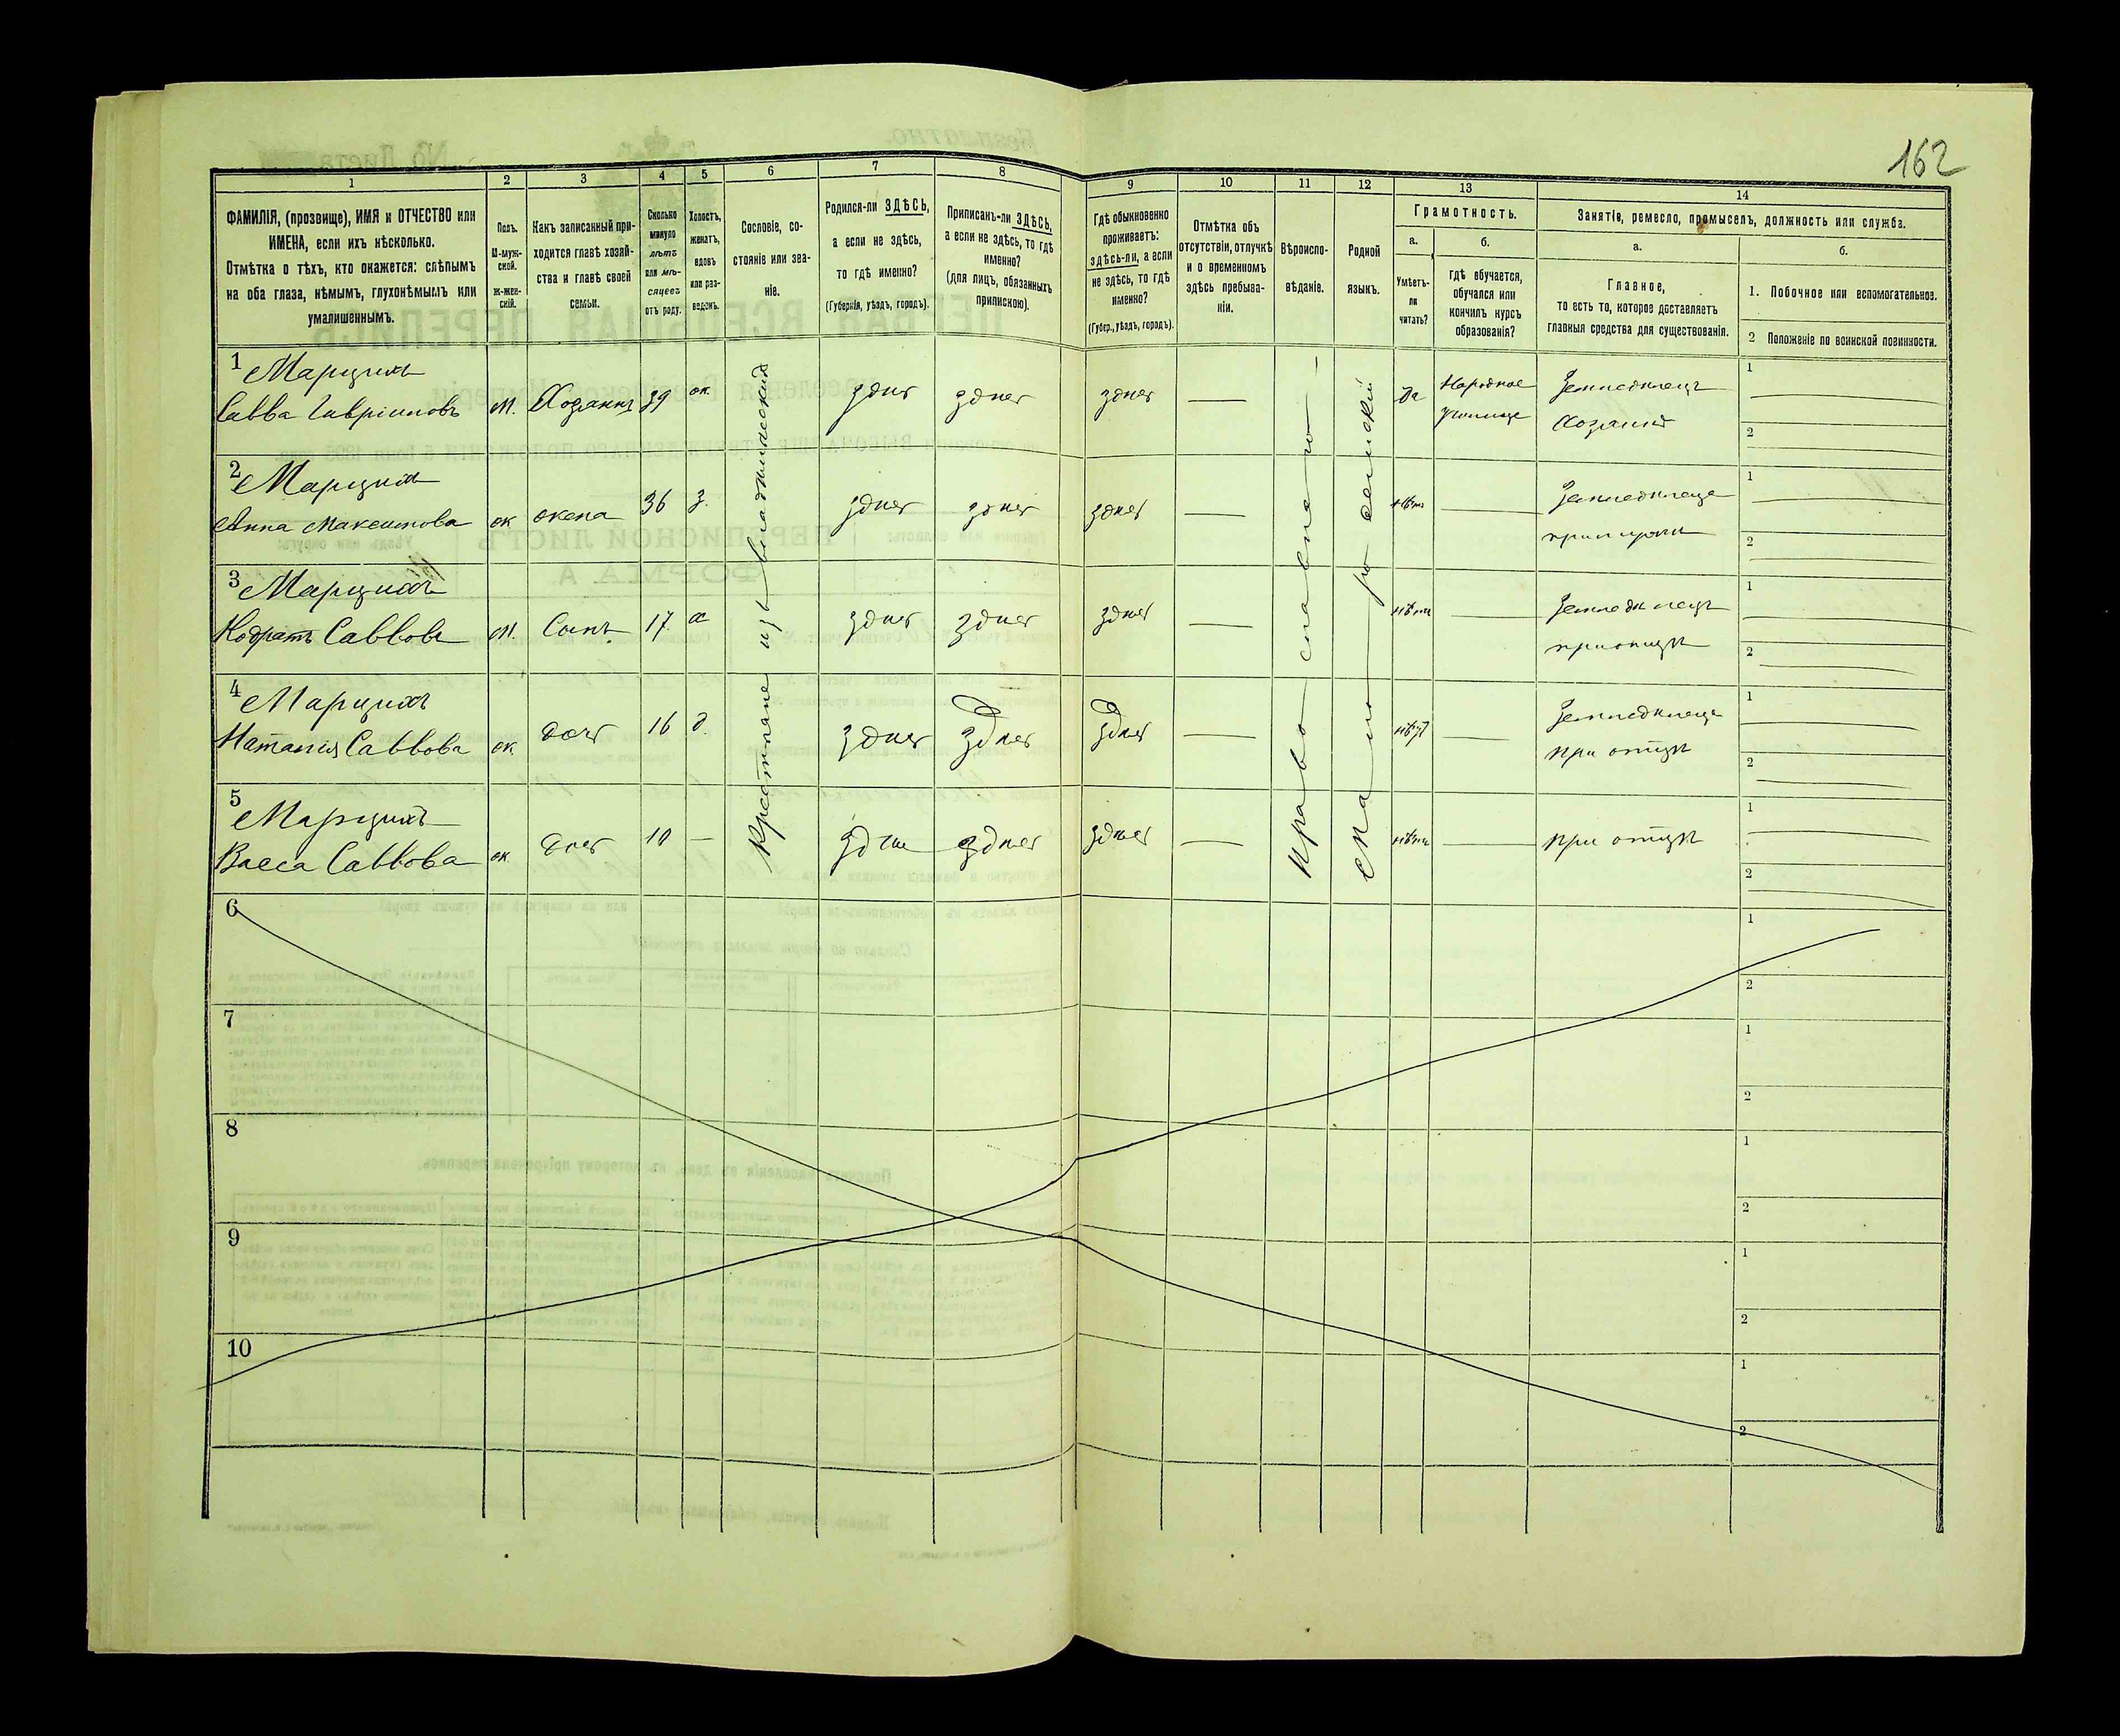 162
1
2
3
4
5
6
7
8
9
10
11
12
13
14
ФАМИЛІЯ, (прозвище), ИМЯ и ОТЧЕСТВО или
ИМЕНА, если ихъ нѣсколько.
Отмѣтка о тѣхъ, кто окажется: слѣпымъ
на оба глаза, нѣмымъ, глухонѣмымъ или
умалишеннымъ.
Полъ.
М-муж-
ской.
Ж-жен-
скій.
Какъ записанный при-
ходится главѣ хозяй-
ства и главѣ своей
семьи.
Сколько
минуло
лѣтъ
или мѣ-
сяцевъ
отъ роду.
Холостъ,
женатъ,
вдовъ
или раз-
веденъ.
Сословіе, со-
стояніе или зва-
ніе.
Родился-ли ЗДѢСЬ,
а если не здѣсь,
то гдѣ именно?
(Губернія, уѣздъ, городъ).
Приписанъ-ли ЗДѢСЬ,
а если не здѣсь, то гдѣ
именно?
(для лицъ, обязанныхъ
припискою).
Гдѣ обыкновенно
проживаетъ:
здѣсь-ли, а если
не здѣсь, то гдѣ
именно?
(Губер., уѣздъ, городъ).
Отмѣтка объ
отсутствіи, отлучкѣ
и о временномъ
здѣсь пребыва-
ніи.
Вѣроиспо-
вѣданіе.
Родной
языкъ.
Грамотность.
а.
Умѣетъ-
ли
читать?
б.
гдѣ обучается,
обучался или
кончилъ курсъ
образованія?
Занятіе, ремесло, промыселъ, должность или служба.
а.
Главное,
то есть то, которое доставляетъ
главныя средства для существованія.
б.
1. Побочное или вспомогательное.
2 Положеніе по воинской повинности.
1 Марцихъ
Савва Гавріиловъ
М.
Хозяинъ
39
ж.
здѣсь
здѣсь
здѣсь
да
Народное
училище
Земледѣлецъ
Хозяинъ
1
2
2 Марцихъ
Анна Максимова
ж
жена
36
з.
здѣсь
здѣсь
здѣсь
нѣтъ
Земледѣлеце
1
2
3 Марцихъ
Кодратъ Саввовъ
М.
Сынъ.
17
х
здѣсь
здѣсь
здѣсь
нѣтъ
Земледѣлецъ
при отцѣ
1
2
4 Марцихъ
Наталія Саввова
ж
дочь
16
д.
здѣсь
здѣсь
здѣсь
нѣтъ
Земледѣлеце
при отцѣ
1
2
5 Марцихъ
Васса Саввова
ж
дочь
10
здѣсь
здѣсь
здѣсь
нѣтъ
при отцѣ
1
2
Крестьяне изъ владѣльческихъ
Православное
малороссійскій
6
1
2
7
1
2
8
1
2
9
1
2
10
1
2